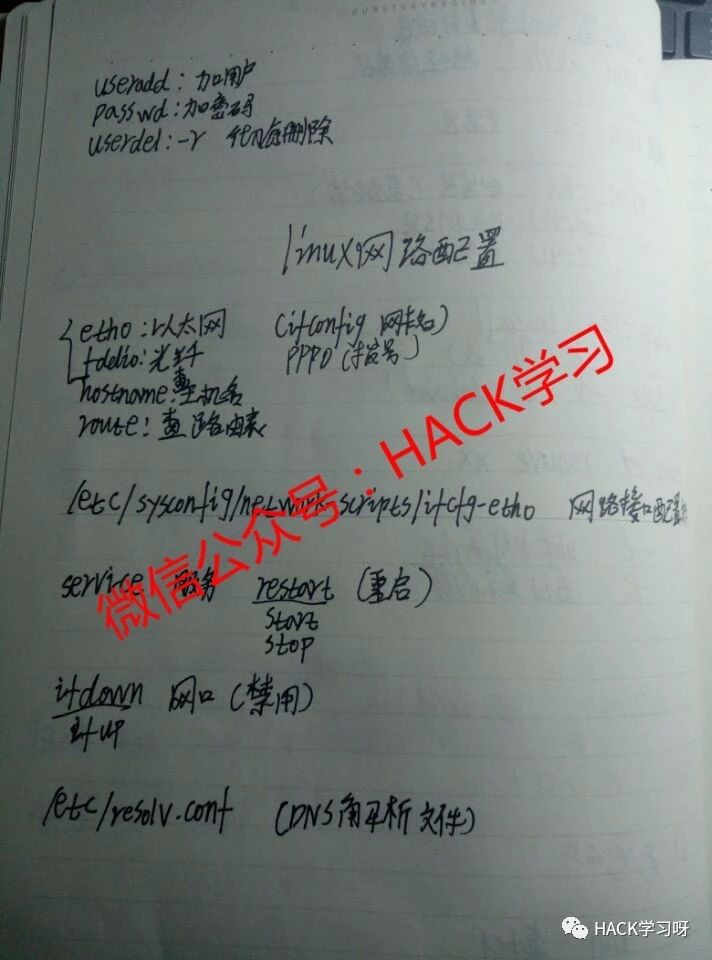 OURSTORYBEGINS
useradd: 加用户
passwd: 加密码
userdel: -r 彻底删除
linux网路配置
etho: 以太网 (ifconfig 网卡名)
光纤 PPPO (拨号)
hostname: 查主机名
route: 查路由表
/etc/sysconfig/network-scripts/ifcfg-etho 网路接口配置
service 服务 restart (重启)
start
stop
ifdown 网口 (禁用)
ifup
/etc/resolv.conf (DNS解析文件)
微信公众号：HACK学习
HACK学习呀